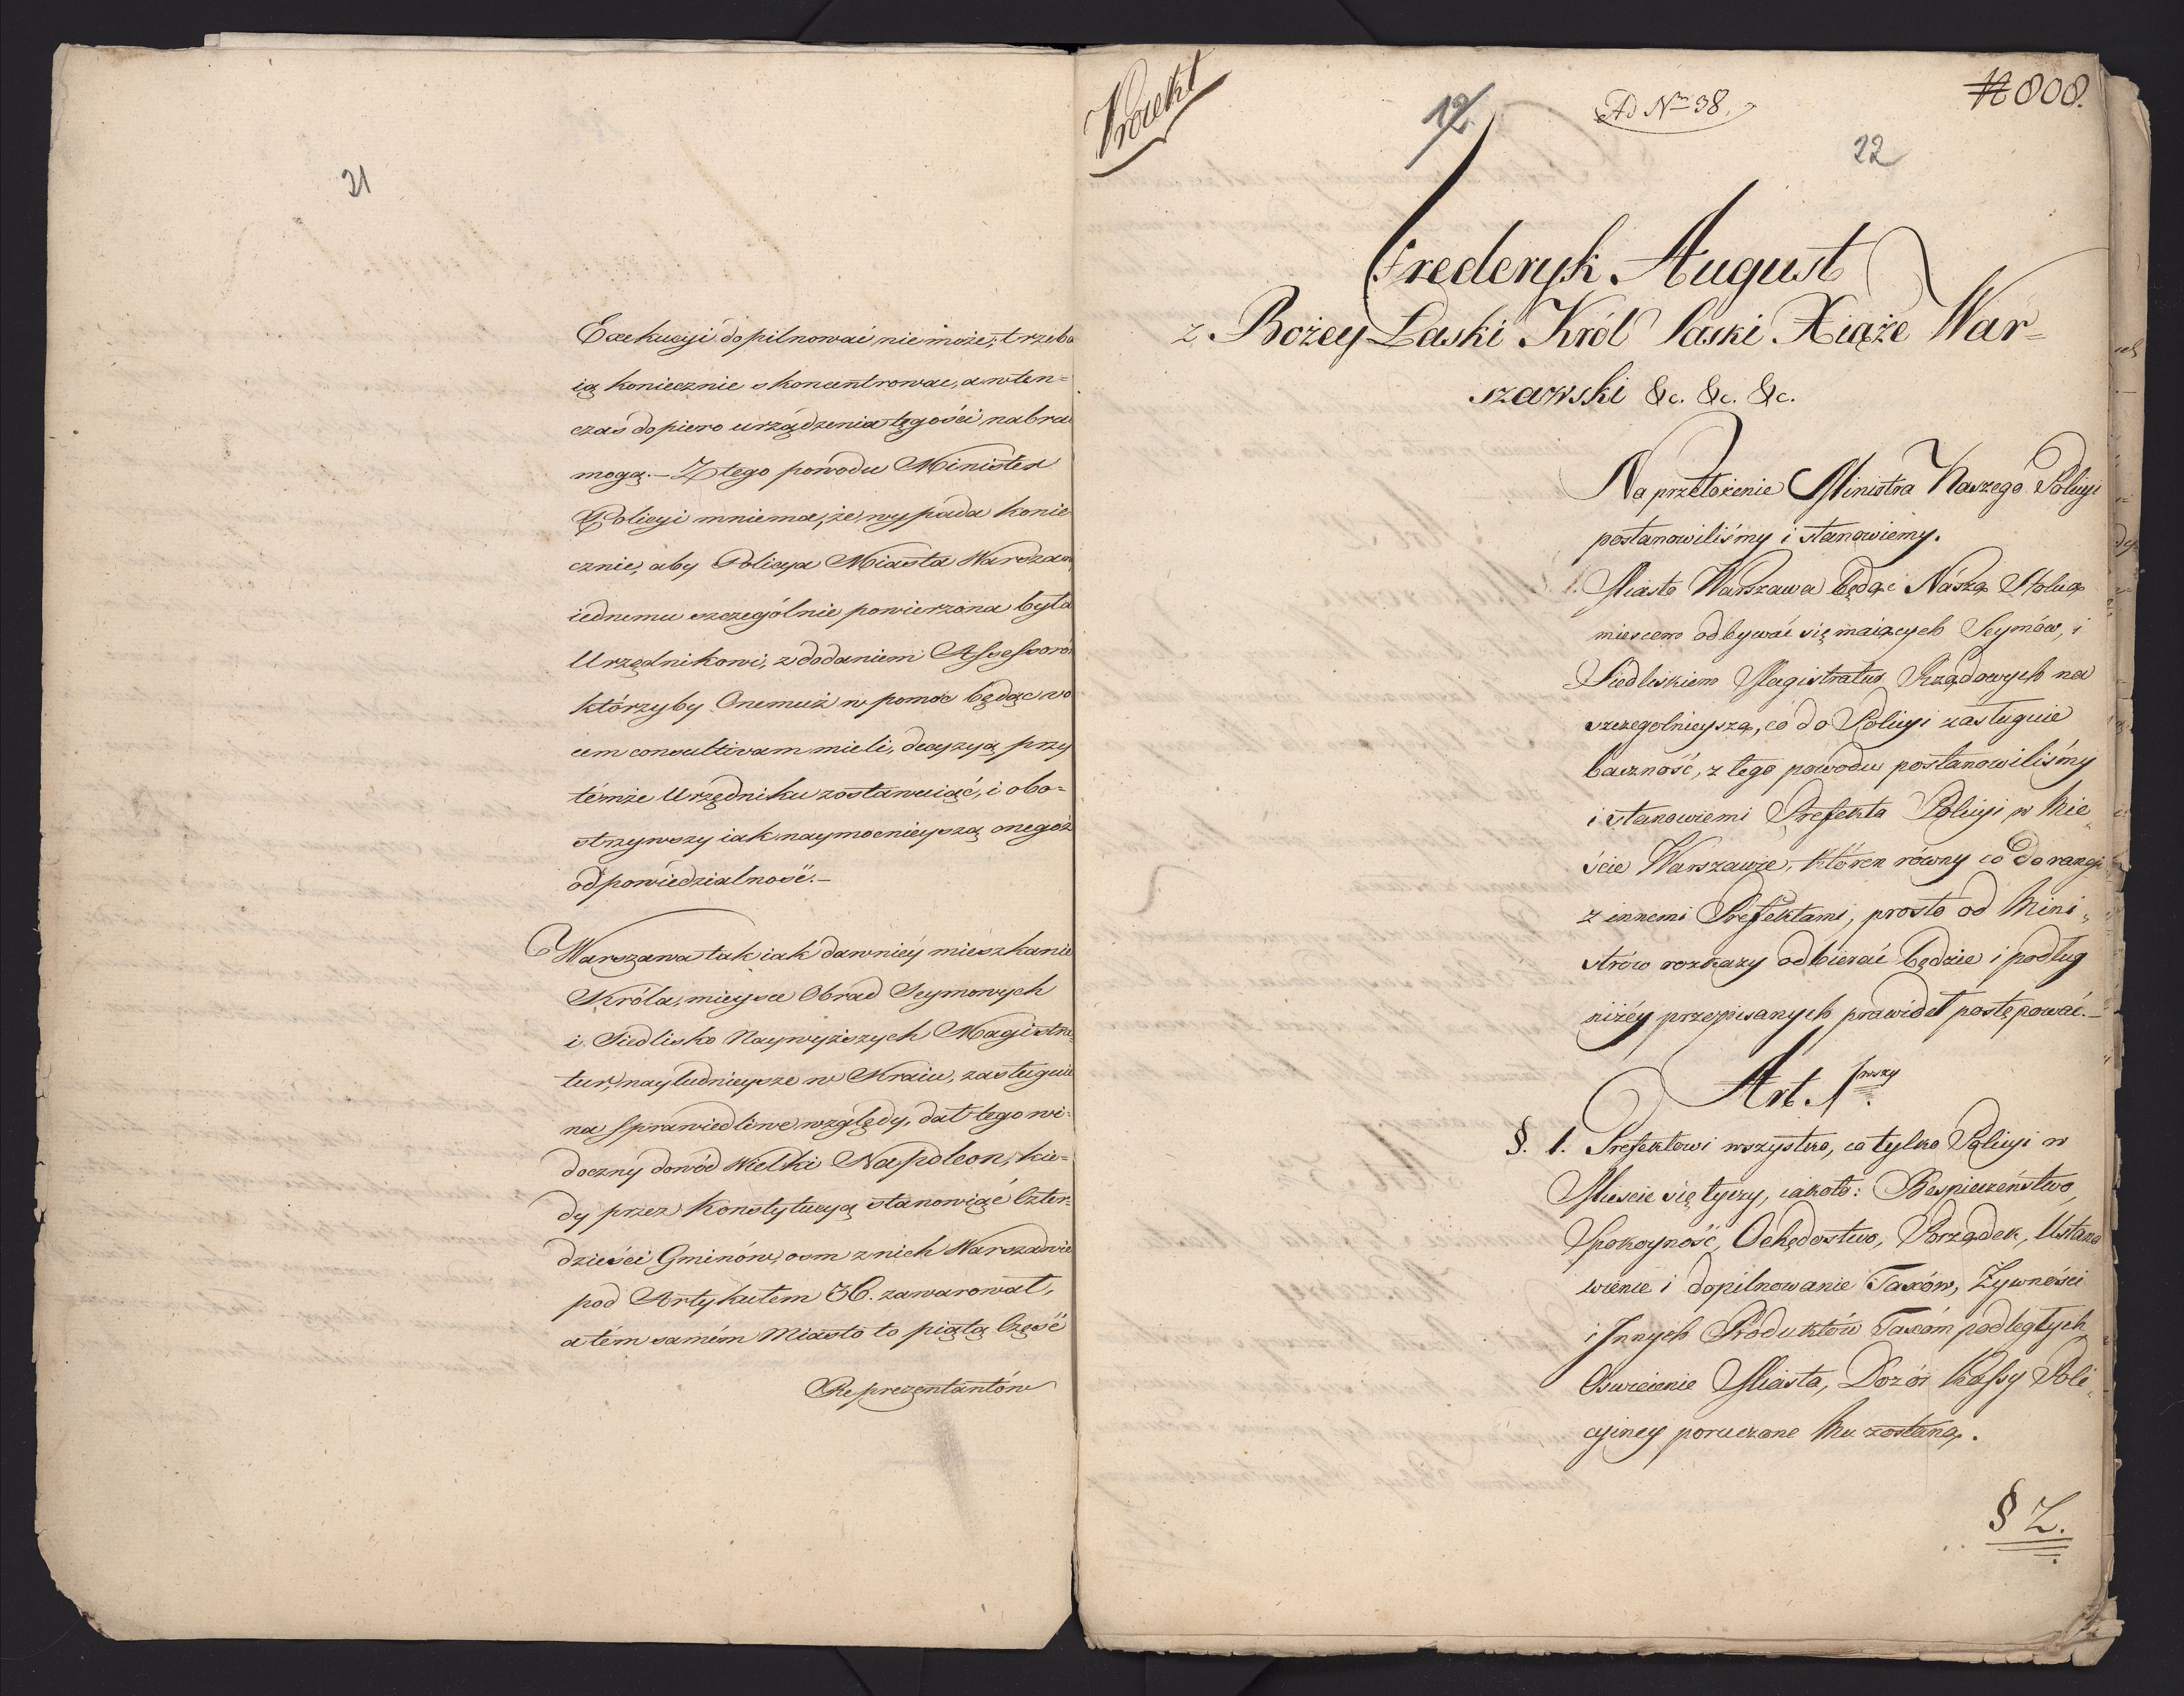 21
Exekucyi dopilnować nie może; trzeba
ią koniecznie skoncentrować, a wten=
czas dopiero urządzenia tęgości nabrać
mogą.— Z tego powodu Minister
Policyi mniema, że wypada konie
cznie, aby Policya Miasta Warszawy
iednemu szczególnie powierzona była
Urzędnikowi, z dodaniem Assessorów
którzyby Onemuż w pomoc będąc vo
cem consultivam mieli, decyzyą przy
témże Urzędniku zostawuiąć, i obo=
strzywszy iak naymocnieyszą onegoż
odpowiedzialność.—
Warszawa tak iak dawniéy mieszkanie
Króla, mieysce Obrad Seymowych
i Siedlisko Naywyższych Magistra
tur, nayludnieysze w Kraiu, zasługuie
na sprawiedliwe względy, dał tego wi=
doczny dowód Wielki Napoleon, kie=
dy przez Konstytucyą stanowiąć Czter=
dzieści Gminów, osm z nich Warszawie
pod Artykułem 36. zawarował,
a tém samém Miasto to piątą Część
Reprezentantów
Proiekt
12.
Ad Nro 38.
N 808.
22
Frederyk August
z Bożey Łaski Król Saski Xiąże War=
szawski &c. &c. &c.
Na przełożenie Ministra Naszego Policyi
postanowiliśmy i stanowiemy.
Miasto Warszawa będąc Naszą Stolicą
miescem odbywać się maiących Seymów, i
Siedliskiem Magistratur Rządowych na
szczegolnieyszą, co do Policyi zasługuie
baczność, z tego powodu postanowiliśmy
i stanowiemi Prefekta Policyi w Mie„
ście Warszawie, któren równy co do rangi
z innemi Prefektami, prosto od Mini„
strów rozkazy odbierać będzie i podług
niżéy przepisanych prawideł postępować.—
Art. 1wszy
§. 1. Prefektowi wszystko, co tylko Policyi w
Mieście się tyczy, iakoto: Bespieczeństwo,
Spokoyność, Ochędostwo, Porządek, Ustano
wienie i dopilnowanie Taxów, Żywności
i Innych Produktów Taxóm podległych
Oswiecenie Miasta, Dozór Kassy Poli„
cyiney poruczone Mu zostaną.
§ 2.